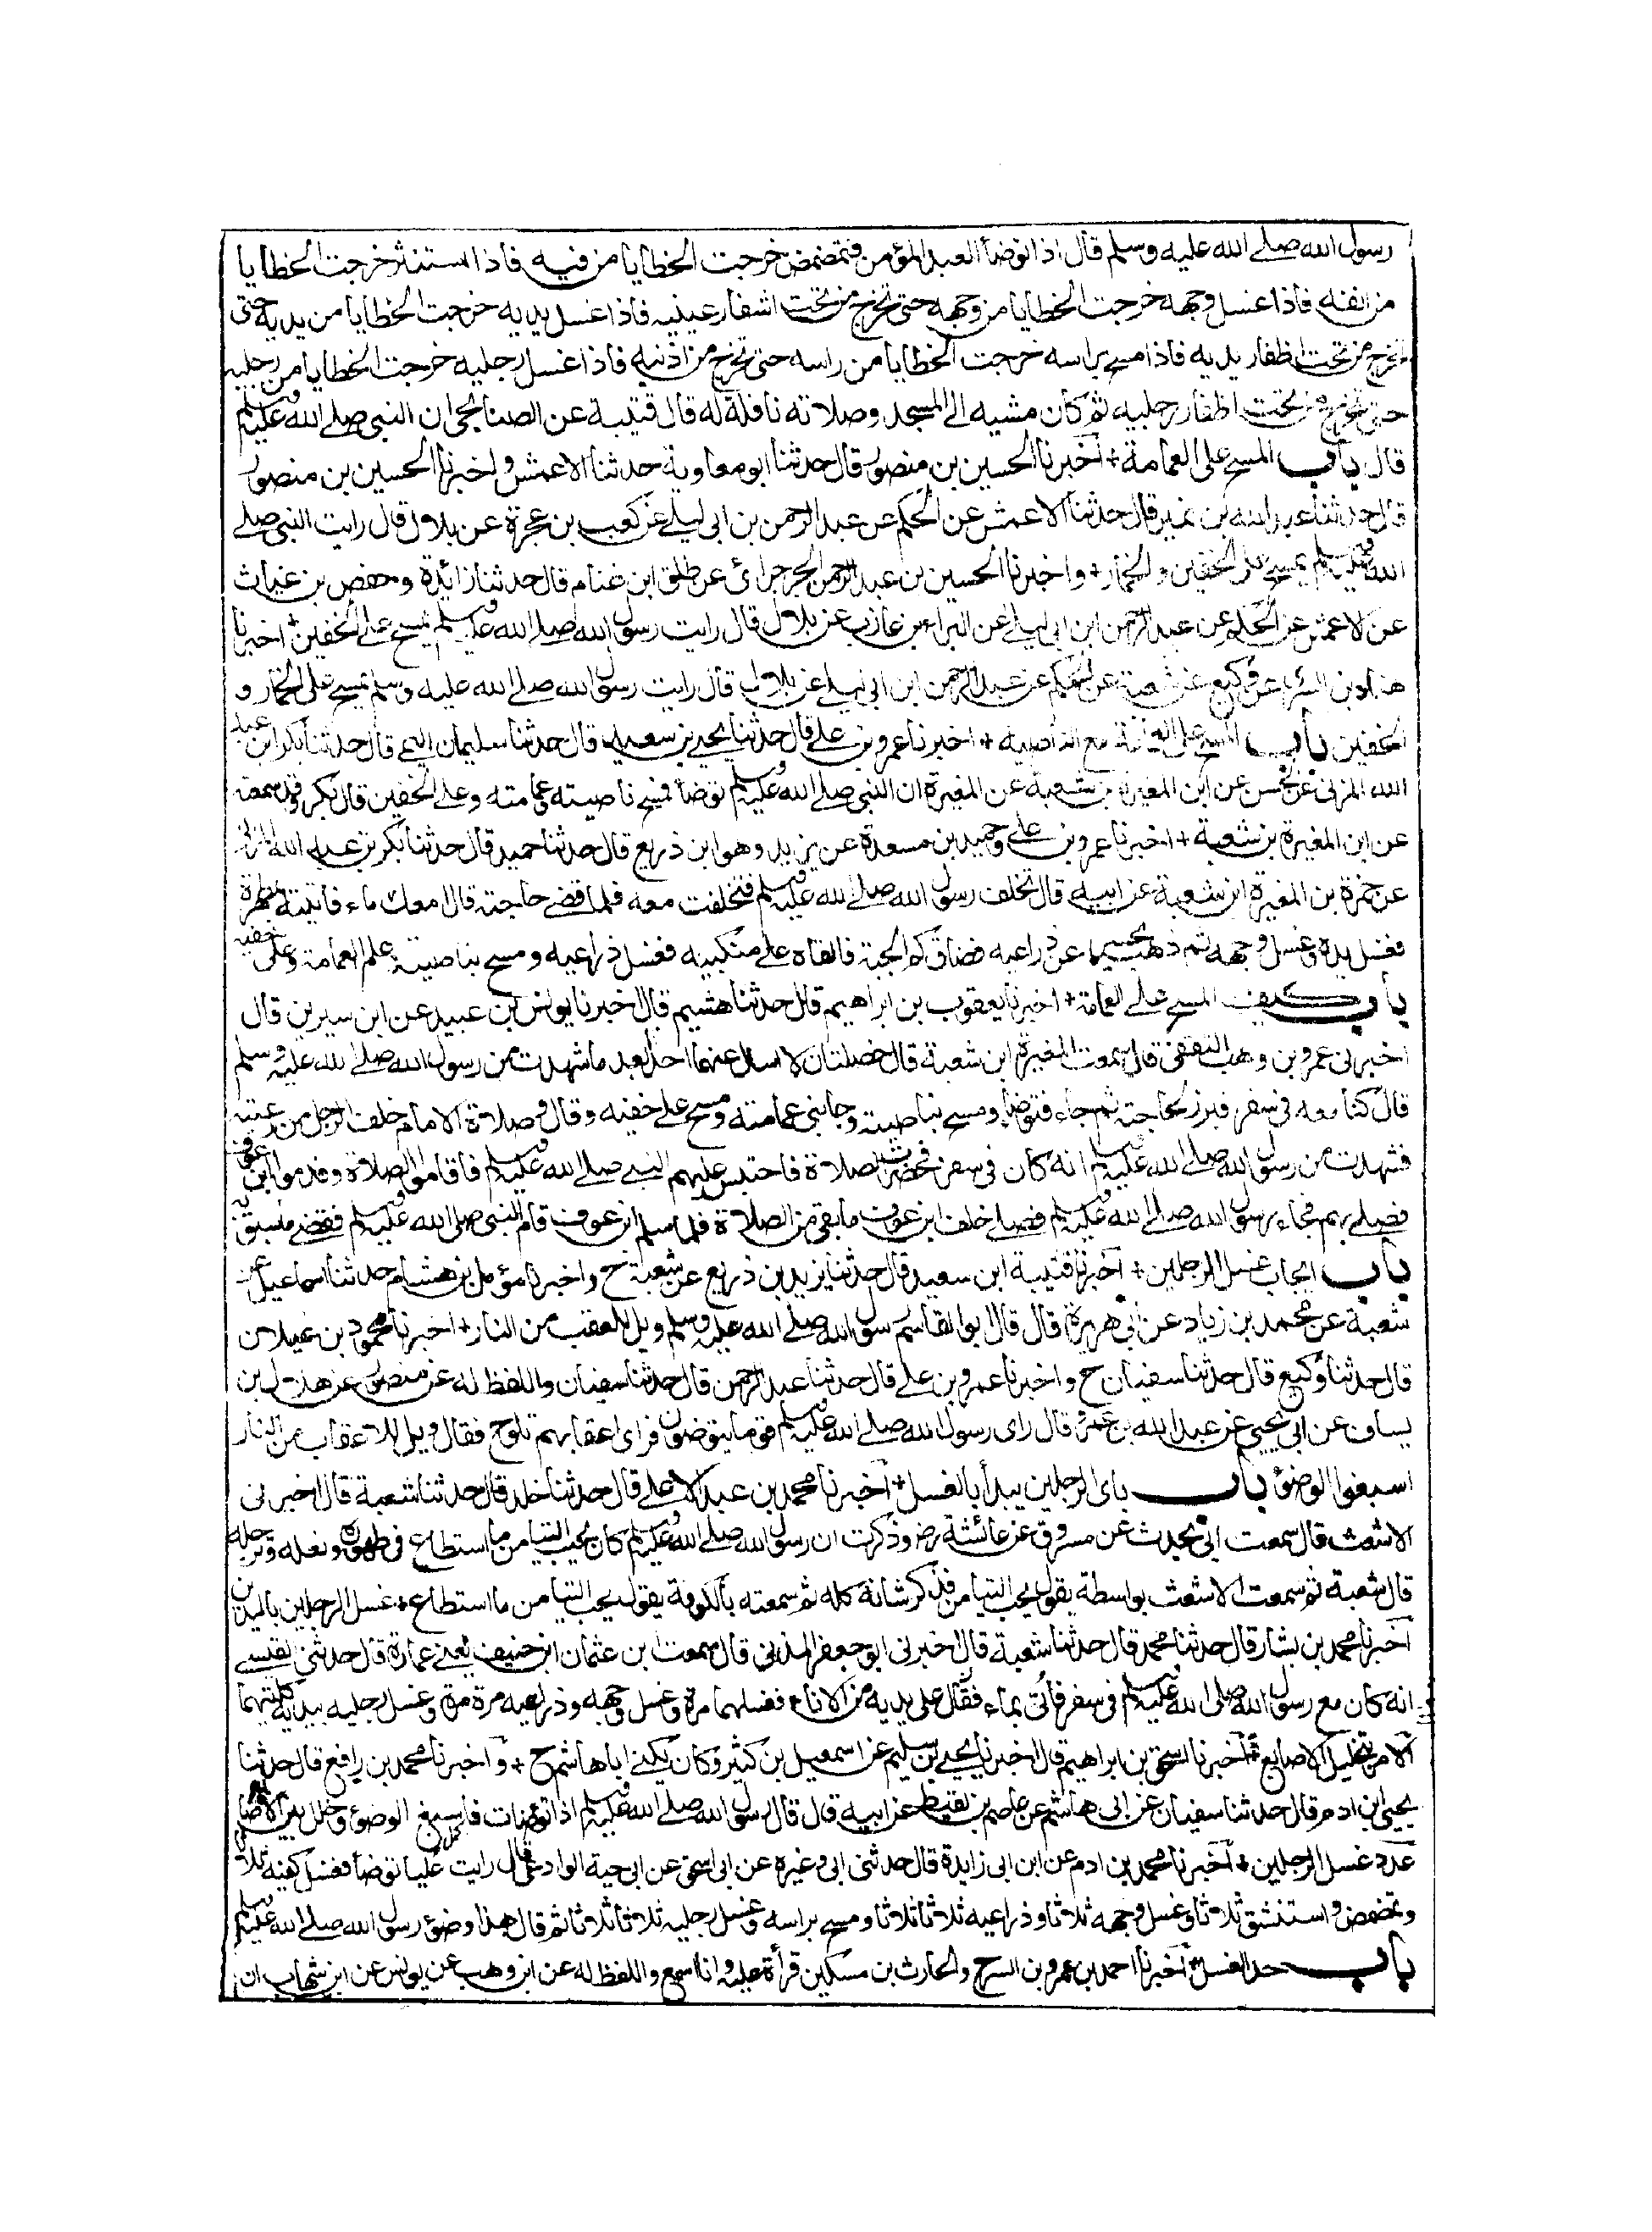 رسول الله صلے الله عليه وسلم قال اذا توضأ العبد المؤمن فتمضمض خرجت الخطايا من فيه فاذا استنثر خرجت الخطايا
من انفه فاذا غسل وجهه خرجت الخطايا من وجهه حتى تخرج من تحت اشفار عينيه فاذا غسل يديه خرجت الخطايا من يديه حتى
تخرج من تحت اظفار يديه فاذا مسح براسه خرجت الخطايا من راسه حتى تخرج من اذنيه فاذا غسل رجليه خرجت الخطايا من رجليه
حتى تخرج من تحت اظفار رجليه ثم كان مشيه الى المسجد وصلاته نافلة له قال قتيبة عن الصنابحى ان النبى صلے الله عليه وسلم
قال باب المسح على العمامة + اخبرنا الحسين بن منصور قال حدثنا ابو معاوية حدثنا الاعمش واخبرنا الحسين بن منصور
قال حدثنا عبد الله بن نمير قال حدثنا الاعمش عن الحكم عن عبد الرحمن بن ابى ليلے عن كعب بن عجرة عن بلال قال رايت النبى صلے
الله عليه وسلم يمسح على الخفين والخمار + واخبرنا الحسين بن عبد الرحمن الجرجرائ عن طلق ابن غنام قال حدثنا زائدة وحفص بن غياث
عن الاعمش عن الحكم عن عبد الرحمن ابن ابى ليلے عن البراء بن عازب عن بلال قال رايت رسول الله صلے الله عليه وسلم يمسح على الخفين + اخبرنا
هناد بن السرى عن وكيع عن شعبة عن الحكم عن عبد الرحمن ابن ابى ليلے عن بلال قال رايت رسول الله صلے الله عليه وسلم يمسح على الخمار و
الخفين باب المسح على العمامة مع الناصية + اخبرنا عمرو بن علے قال حدثنا يحيے بن سعيد قال حدثنا سليمان التيمى قال حدثنا بكر ابن عبد
الله المزنى عن الحسن عن ابن المغيرة بن شعبة عن المغيرة ان النبى صلے الله عليه وسلم توضأ فمسح ناصيته وعمامته وعلى الخفين قال بكر وقد سمعته
عن ابن المغيرة بن شعبة + اخبرنا عمرو بن علے وحميد بن مسعدة عن يزيد وهو ابن ذريع قال حدثنا حميد قال حدثنا بكر بن عبد الله المزنى
عن حمزة بن المغيرة ابن شعبة عن ابيه قال تخلف رسول الله صلے الله عليه وسلم فتخلفت معه فلما قضے حاجته قال امعك ماء فاتيته بمطهرة
فغسل يديه وغسل وجهه ثم ذهب يحسر عن ذراعيه فضاق كم الجبة فالقاه علے منكبيه فغسل ذراعيه ومسح بناصيته وعلى العمامة وعلى خفيه
باب كيف المسح علے العمامة + اخبرنا يعقوب بن ابراهيم قال حدثنا هشيم قال اخبرنا يونس بن عبيد عن ابن سيرين قال
اخبرنى عمرو بن وهب الثقفى قال سمعت المغيرة ابن شعبة قال خصلتان لا اسال عنهما احدا بعد ما شهدت من رسول الله صلے الله عليه وسلم
قال كنا معه فى سفر فبرز لحاجته ثم جاء فتوضا ومسح بناصيته وجانبى عمامته ومسح علے خفيه وقال وصلاة الامام خلف الرجل من رعيته
فشهدت من رسول الله صلے الله عليه وسلم انه كان فى سفر فحضرت الصلاة فاحتبس عليهم النبے صلے الله عليه وسلم فاقاموا الصلاة وقدموا ابن عوف
فصلے بهم فجاء رسول الله صلے الله عليه وسلم فصلے خلف ابن عوف ما بقى من الصلاة فلما سلم ابن عوف قام النبى صلى الله عليه وسلم فقضے ما سبق به
باب ايجاب غسل الرجلين + اخبرنا قتيبة ابن سعيد قال حدثنا يزيد بن ذريع عن شعبة ح واخبرنا مؤمل بن هشام حدثنا اسماعيل عن
شعبة عن محمد بن زياد عن ابى هريرة قال قال ابوالقاسم رسول الله صلے الله عليه وسلم ويل للعقب من النار + اخبرنا محمود بن غيلان
قال حدثنا وكيع قال حدثنا سفيان ح واخبرنا عمرو بن علے قال حدثنا عبد الرحمن قال حدثنا سفيان واللفظ له عن منصور عن هلال بن
يساف عن ابى يحيى عن عبد الله بن عمرو قال راى رسول الله صلے الله عليه وسلم قوما يتوضون فراى اعقابهم تلوح فقال ويل للاعقاب من النار
اسبغوا الوضوء باب باى الرجلين يبدأ بالغسل + اخبرنا محمد بن عبد الاعلے قال حدثنا خلد قال حدثنا شعبة قال اخبرنى
الاشعث قال سمعت ابى يحدث عن مسروق عن عائشة رض وذكرت ان رسول الله صلے الله عليه وسلم كان يحب التيامن ما استطاع فى طهوره ونعله وترجله
قال شعبة ثم سمعت الاشعث بواسطة يقول يحب التيامن فذكر شانه كله ثم سمعته بالكوفة يقول يحب التيامن ما استطاع + غسل الرجلين باليدين
اخبرنا محمد بن بشار قال حدثنا محمد قال حدثنا شعبة قال اخبرنى ابو جعفر المدنى قال سمعت ابن عثمان ابن حنيف يعنے عمارة قال حدثنى القيسے
انه كان مع رسول الله صلى الله عليه وسلم فى سفر فاتى بماء فقال على يديه من الاناء فغسلهما مرة وغسل وجهه وذراعيه مرة مرة وغسل رجليه بيديه كلتيهما
الامر بتخليل الاصابع + اخبرنا اسحق بن ابراهيم قال اخبرنا يحيے بن سليم عن اسمعيل بن كثير وكان يكنے ابا هاشم ح + واخبرنا محمد بن رافع قال حدثنا
يحيى ابن ادم قال حدثنا سفيان عن ابى هاشم عن عاصم بن لقيط عن ابيه قال قال رسول الله صلے الله عليه وسلم اذا توضات فاسبغ الوضوء وخلل بين الاصابع
عدد غسل الرجلين + اخبرنا محمد بن ادم عن ابن ابى زايدة قال حدثنى ابى وغيره عن ابى اسحق عن ابى حية الوادعى قال رايت عليا توضا فغسل كفيه ثلاثا
وتمضمض واستنشق ثلاثا وغسل وجهه ثلاثا وذراعيه ثلاثا ثلاثا ومسح براسه وغسل رجليه ثلاثا ثلاثا ثم قال هذا وضوء رسول الله صلے الله عليه وسلم
باب حد الغسل + اخبرنا احمد بن عمرو بن السرح والحارث بن مسكين قرأة عليه وانا اسمع واللفظ له عن ابن وهب عن يونس عن ابن شهاب ان